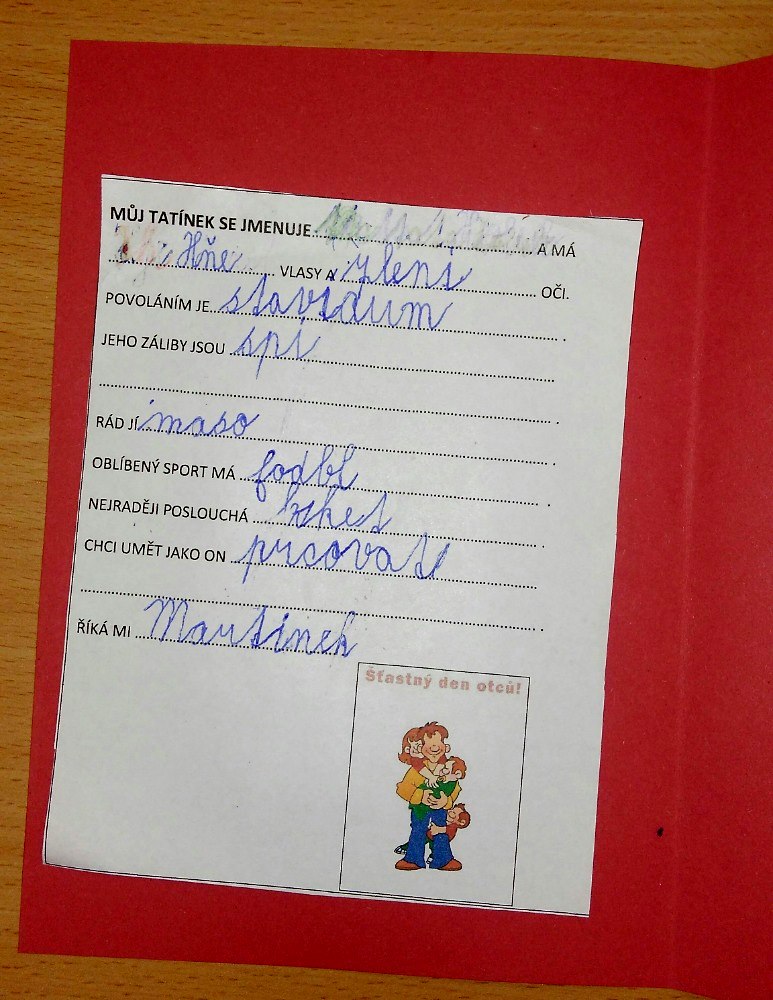 MŮJ TATÍNEK SE JMENUJE A MÁ
Hňe VLASY A zlení OČI.
POVOLÁNÍM JE stavídum.
JEHO ZÁLIBY JSOU spí
RÁD JÍ maso.
OBLÍBENÝ SPORT MÁ fodbl.
NEJRADĚJI POSLOUCHÁ
CHCI UMĚT JAKO ON prcovat
ŘÍKÁ MI Martínek.
Šťastný den otců!